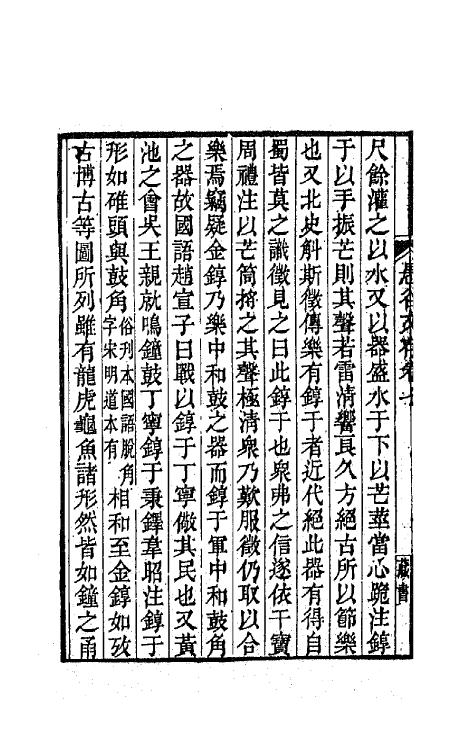 尺餘灌之以水又以器盛水于下以芒莖當心跪注錞
于以手振芒則其聲若雷清響良久方絕古所以節樂
也又北史斛斯徵傳樂有錞于者近代絕此器有得自
蜀皆莫之識徵見之曰此錞于也衆弗之信遂依干寶
周禮注以芒筒捋之其聲極清衆乃歎服徵仍取以合
樂焉竊疑金錞乃樂中和鼓之器而錞于軍中和鼓角
之器故國語趙宣子曰戰以錞于丁寧儆其民也又黃
池之會吳王親就鳴鐘鼓丁寧錞于秉鐸韋昭注錞于
形如碓頭與鼓角俗刋本國語脫角字宋明道本有相和至金錞如攷
古博古等圖所列雖有龍虎龜魚諸形然皆如鐘之甬
藏書